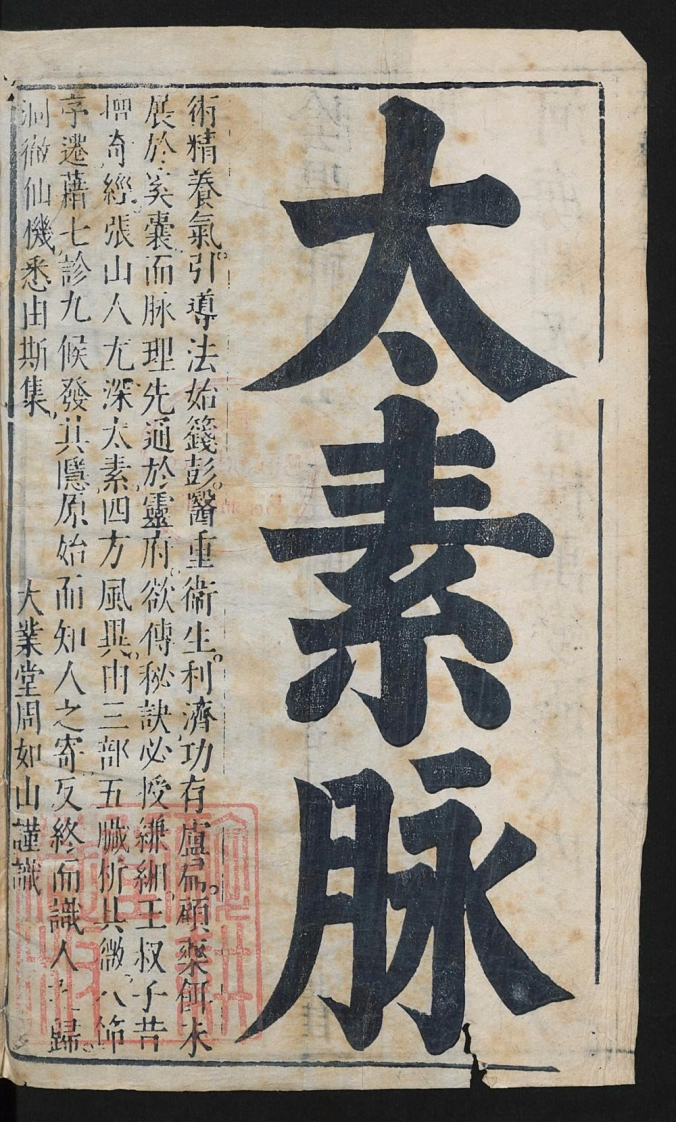 太素脉
術精養氣。引導法始籛彭。醫重衛生。利濟功存盧扁。顧藥餌未
展於奚囊。而脉理先通於靈府。欲傳秘訣。必授縑緗。王叔子昔
增奇經。張山人尤深太素。四方風異。由三部五臟析其微。八節
序遷。藉七診九候發其隱。原始而知人之寄。反終而識人之歸。
洞徹仙機。悉由斯集。 大業堂周如山謹識